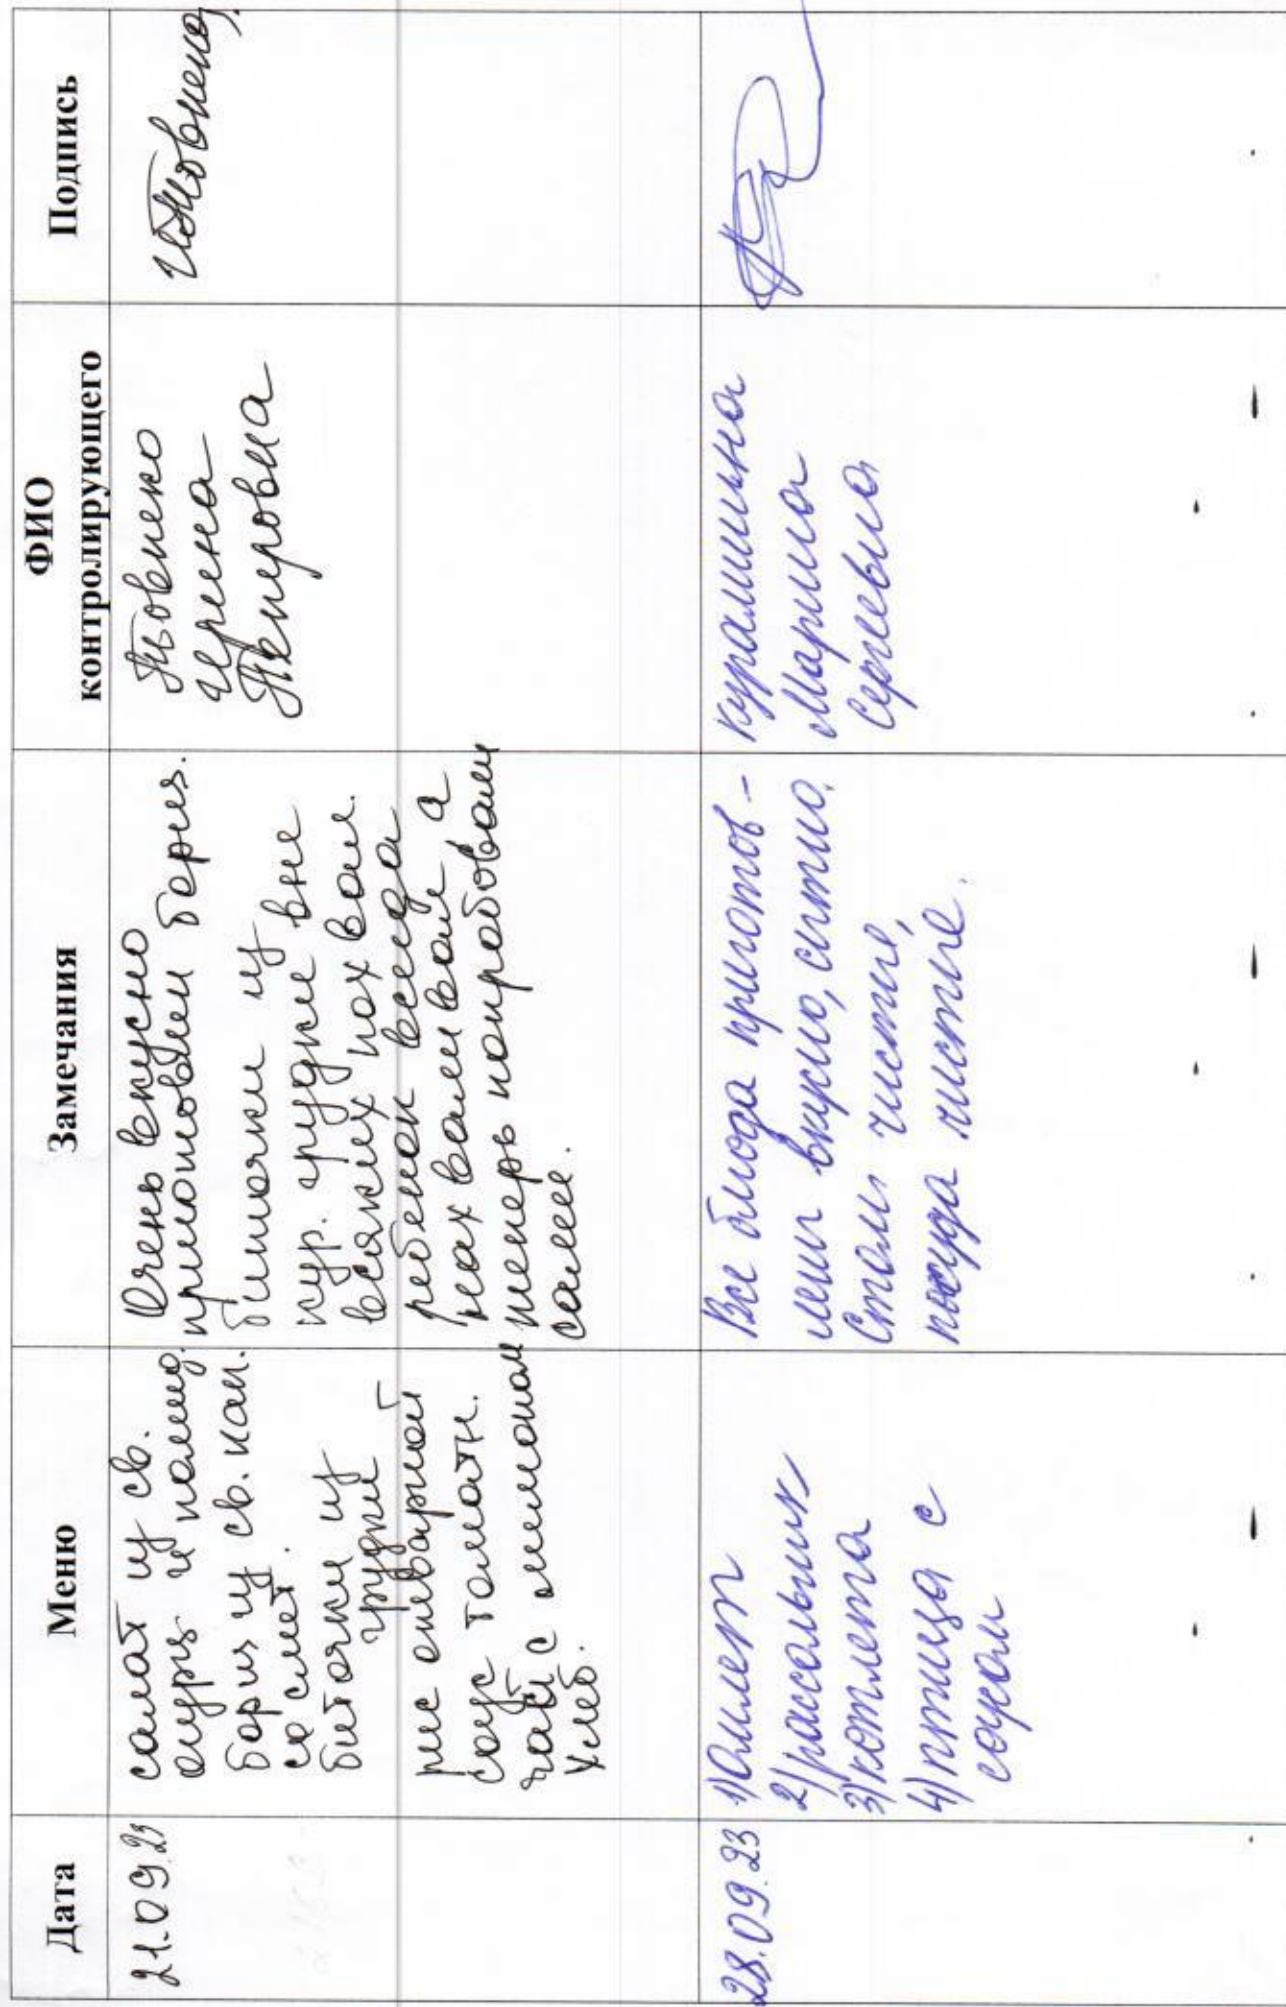 Дата
Меню
Замечания
ФИО
контролирующего
Подпись
21.09.23
салат из св.
огурц и помид.
борщ из св. кап.
со смет.
биточки из
грудки
рис отварной
соус томатн.
чай с лимоном
хлеб.
Очень вкусно
приготовлен борщ.
биточки из
кур. грудки вне
всяких похвал.
ребенок всегда
нахваливает а
теперь попробовали
сами.
Ирина
28.09.23
1) Омлет
2) рассольник
3) котлета
4) птица с
соком
Все блюда приготов-
лены вкусно, сытно.
Столы чистые,
посуда чистые.
Курамшина
Марина
Сергеевна